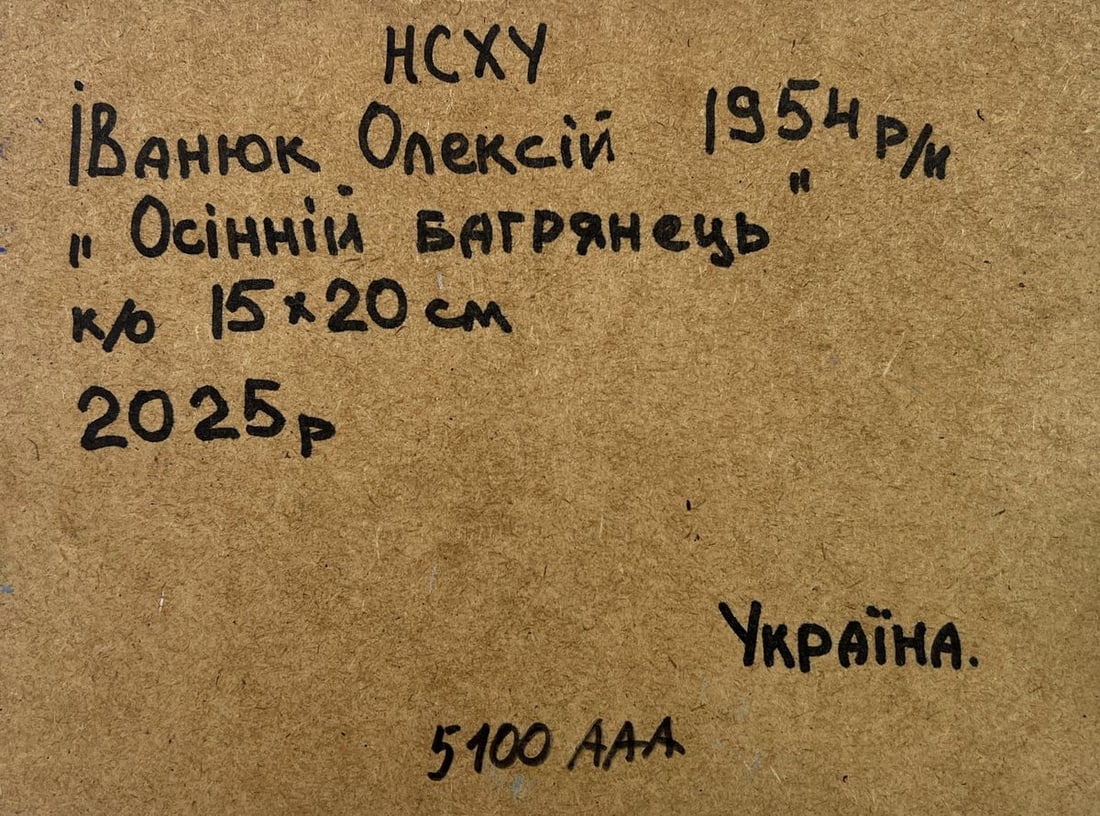 НСХУ
Іванюк Олексій 1954 р/н
„Осінній багрянець"
к/о 15×20 см
2025р
Україна.
5100 ААА